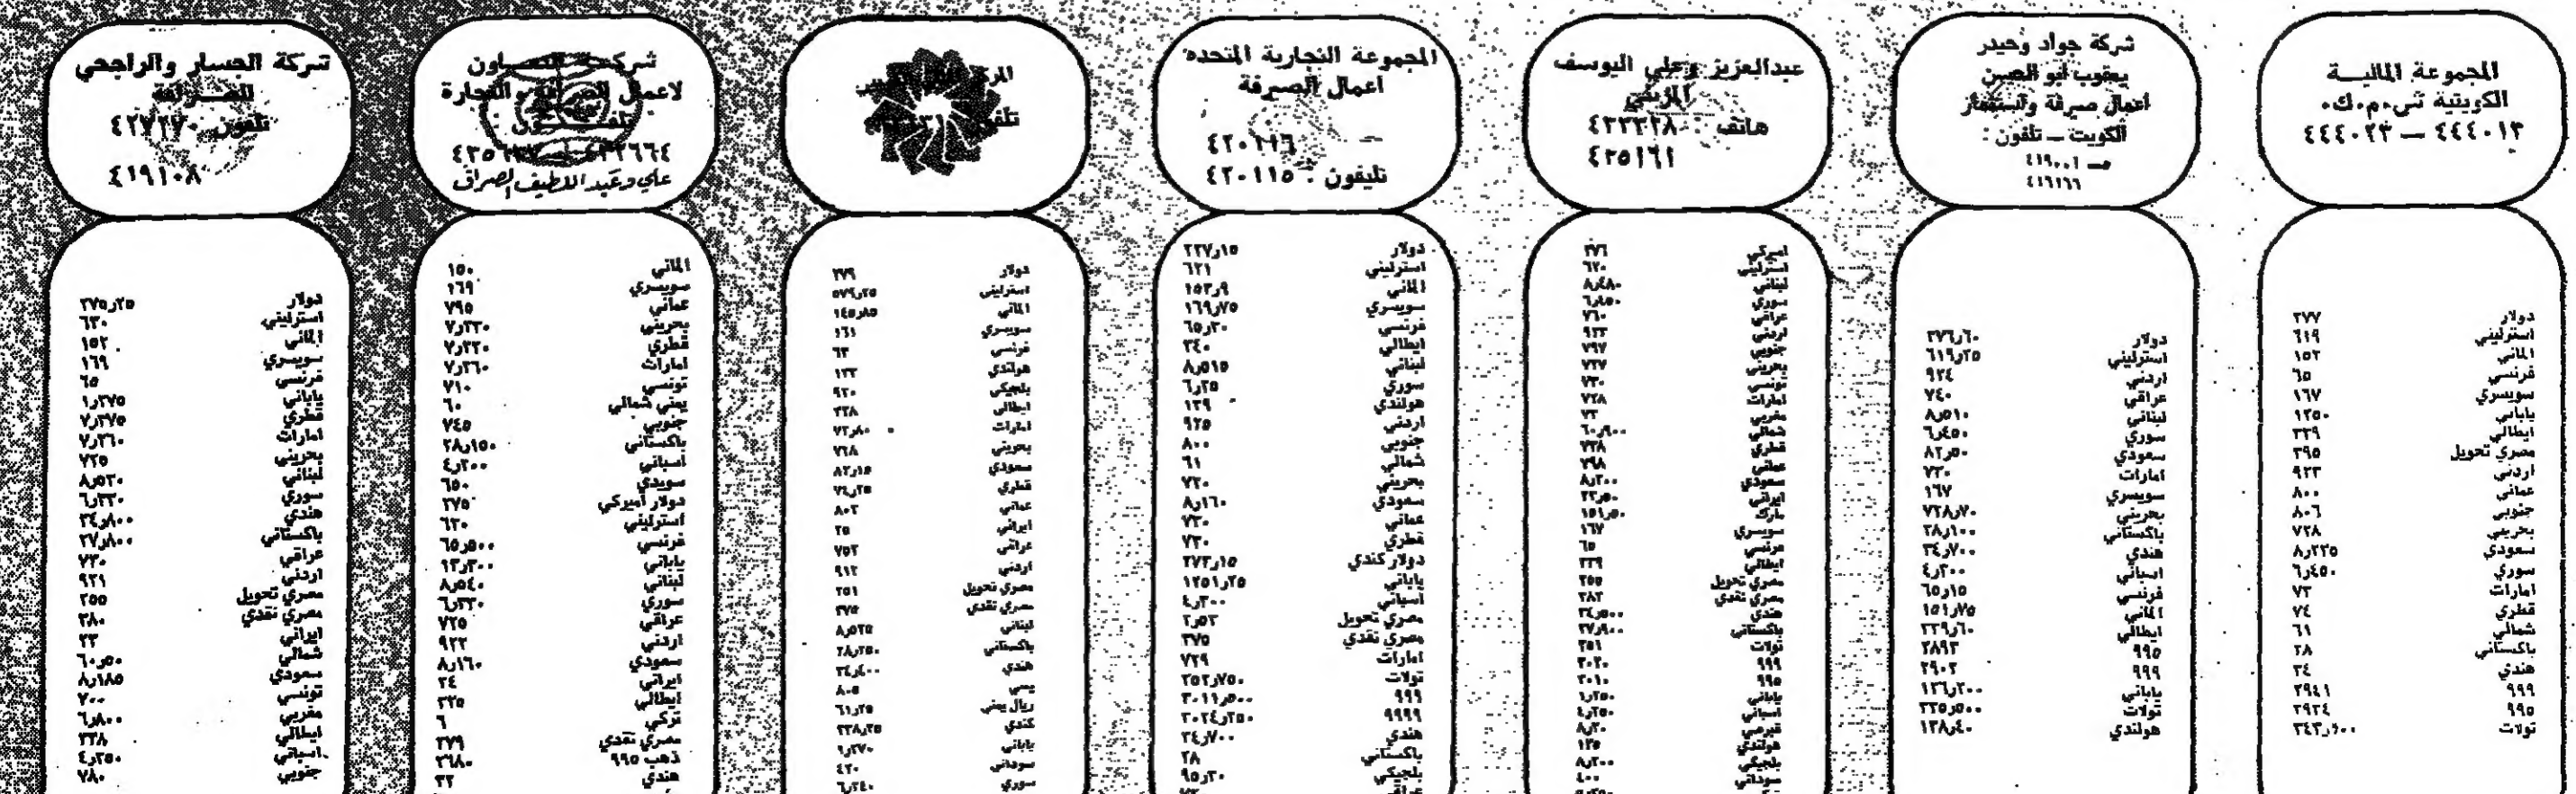 المجموعة المالية
الكويتية ش.م.ك.
٤٤٤٠١٣ — ٤٤٤٠٢٣
دولار ٢٧٧
استرليني ٦١٩
الماني ١٥٢
فرنسي ٦٥
سويسري ١٦٧
ياباني ١٢٥٠
ايطالي ٣٣٩
مصري تحويل ٣٩٥
اردني ٩٢٣
عماني ٨٠٠
جنوبي ٨٠٦
بحريني ٧٢٨
سعودي ٨٫٢٢٥
سوري ٦٫٤٥٠
امارات ٧٣
قطري ٧٤
شمالي ٦١
باكستاني ٢٨
هندي ٣٤
٩٩٩ ٢٩٤١
٩٩٥ ٢٩٢٤
تولات
شركة جواد وحيدر
يعقوب ابو الحسن
اعمال صيرفة واستثمار
الكويت — تلفون :
٤١٩٠٠١
٤١٩١٦٦
دولار ٢٧٦٫٦٠
استرليني ٦١٩٫٢٥
اردني ٩٢٤
عراقي ٧٤٠
لبناني ٨٫٥١٠
سوري ٦٫٤٥٠
سعودي ٨٢٫٥٠
امارات ٧٣٠
سويسري ١٦٧
بحريني ٧٢٨٫٧٠
باكستاني ٢٨٫١٠٠
هندي ٣٤٫٧٠٠
اسباني ٤٫٢٠٠
فرنسي ٦٥٫١٥
الماني ١٥١٫٧٥
ايطالي ٣٣٩٫٦٠
٩٩٥ ٢٨٩٣
٩٩٩ ٢٩٠٢
ياباني ١٢٦٫٢٠٠
تولات ٣٣٥٫٥٠٠
هولندي ١٣٨٫٤٠
عبدالعزيز وعلي اليوسف
المزيني
هاتف : ٤٣٣٣٣٨
٤٣٥١٦١
اميركي ٢٧٦
استرليني ٦٢٠
لبناني ٨٫٤٨٠
سوري ٦٫٤٥٠
عراقي ٧٦٠
اردني ٩٢٣
جنوبي ٧٩٧
بحريني ٧٢٧
تونسي ٧٣٠
امارات ٧٢٨
مغربي
شمالي ٦٠٫٩٠٠
قطري ٧٣٨
عماني ٧٩٨
سعودي ٨٫٢٠٠
ايراني ٢٢٫٥٠
مارك ١٥١٫٥٠
سويسري ١٦٧
فرنسي ٦٥
ايطالي ٣٣٩
مصري تحويل ٣٥٥
مصري نقدي ٣٨٢
هندي ٣٤٫٥٠٠
باكستاني ٢٧٫٩٠٠
تولات ٣٥١
٩٩٩ ٣٠٣٠
٩٩٥ ٣٠١٠
ياباني ١٫٢٥٠
اسباني ٤٫٢٥٠
قبرصي ٨٫٢٠
هولندي ١٣٥
بلجيكي ٨٫٢٠٠
سوداني ٤٠٠
المجموعة التجارية المتحده
اعمال الصيرفة
٤٢٠١١٦
تليفون : ٤٢٠١١٥
دولار ٢٢٧٫١٥
استرليني ٦٢١
الماني ١٥٢٫٩
سويسري ١٦٩٫٧٥
فرنسي ٦٥٫٣٠
ايطالي ٣٤٠
لبناني ٨٫٥١٥
سوري ٦٫٣٥
هولندي ١٣٩
اردني ٩٢٥
جنوبي ٨٠٠
شمالي ٦١
بحريني ٧٣٠
سعودي ٨٫١٦٠
عماني ٧٣٠
قطري ٧٣٠
دولار كندي ٢٧٣٫١٥
ياباني ١٢٥١٫٢٥
اسباني ٤٫٣٠٠
مصري تحويل ٣٫٥٣
مصري نقدي ٣٧٥
امارات ٧٢٩
تولات ٣٥٢٫٧٥٠
٩٩٩ ٣٠١١٫٥٠٠
٩٩٩٩ ٣٠٢٤٫٢٥٠
هندي ٣٤٫٧٠٠
باكستاني ٢٨
بلجيكي ٩٥٫٣٠
عراقي
تلفون
دولار ٢٧٩
استرليني ٥٧٩٫٢٥
الماني ١٤٥٫٨٥
سويسري ١٦١
فرنسي ٦٣
هولندي ١٣٣
بلجيكي ٩٢٠
ايطالي ٣٣٨
امارات ٧٢٫٨٠
بحريني ٧٢٨
سعودي ٨٢٫١٥
قطري ٧٤٫٢٥
عماني ٨٠٢
ايراني ٢٥
عراقي ٧٥٢
اردني ٩١٢
مصري تحويل ٣٥١
مصري نقدي ٣٧٥
لبناني ٨٫٥٢٥
باكستاني ٢٨٫٢٥٠
هندي ٣٤٫٤٠٠
يمني ٨٠٥
ريال يمني ٦١٫٢٥
كندي ٢٣٨٫٢٥
ياباني ١٫٢٧٠
سوداني ٤٢٠
سوري ٦٫٢٤٠
شركة التعاون
لاعمال الصرافة والتجارة
تلفون :
علي وعبد اللطيف الصراف
الماني ١٥٠
سويسري ١٦٩
عماني ٧٩٥
بحريني ٧٫٣٣٠
قطري ٧٫٣٢٠
امارات ٧٫٢٦٠
تونسي ٧١٠
يمني شمالي ٦٠
جنوبي ٧٤٥
باكستاني ٢٨٫١٥٠
اسباني ٤٫٢٠٠
سويدي ٦٥٠
دولار اميركي ٢٧٥
استرليني ٦٢٠
فرنسي ٦٥٫٥٠٠
ياباني ١٣٫٣٠٠
لبناني ٨٫٥٤٠
سوري ٦٫٣٣٠
عراقي ٧٢٥
اردني ٩٢٢
سعودي ٨٫١٦٠
ايراني ٢٤
ايطالي ٣٣٥
تركي ٦
مصري نقدي ٣٧٩
ذهب ٩٩٥ ٢٦٨٠
هندي ٣٣
شركة الجسار والراجحي
للصرافة
تلفون ٤٢٧٢٧٠
٤١٩١٠٨
دولار ٢٧٥٫٢٥
استرليني ٦٣٠
الماني ١٥٢
سويسري ١٦٩
فرنسي ٦٥
ياباني ١٫٢٧٥
قطري ٧٫٣٧٥
امارات ٧٫٢٦٠
بحريني ٧٢٥
لبناني ٨٫٥٢٠
سوري ٦٫٣٢٠
هندي ٣٤٫٨٠٠
باكستاني ٢٧٫٨٠٠
عراقي ٧٣٠
اردني ٩٢١
مصري تحويل ٣٥٥
مصري نقدي ٣٨٠
ايراني ٢٣
شمالي ٦٠٫٥٠
سعودي ٨٫١٨٥
تونسي ٧٠٠
مغربي ٦٫٨٠٠
ايطالي ٣٣٨
اسباني ٤٫٢٥٠
جنوبي ٧٨٠